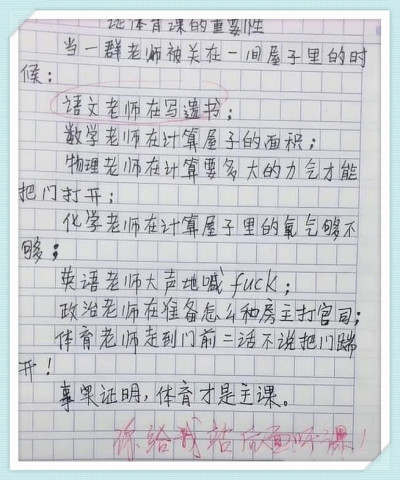 谈体育课的重要性
当一群老师被关在一间屋子里的时
候：
语文老师在写遗书；
数学老师在计算屋子的面积；
物理老师在计算要多大的力气才能
把门打开；
化学老师在计算屋子里的氧气够不
够；
英语老师大声地喊fuck；
政治老师在准备怎么和房主打官司；
体育老师走到门前二话不说把门踹
开！
事实证明，体育才是主课。
你给我站后面听课！